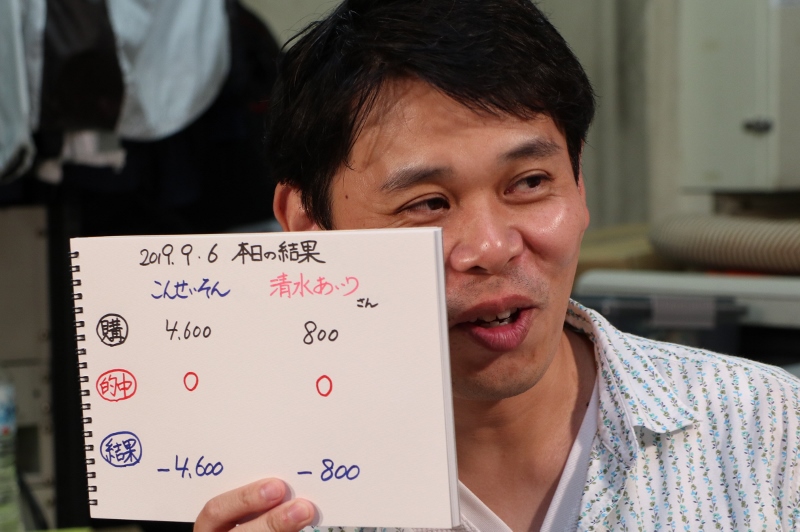 2019.9.6 本日の結果
こんせいそん 清水あいりさん
購 4.600 800
的中 0 0
結果 -4.600 -800